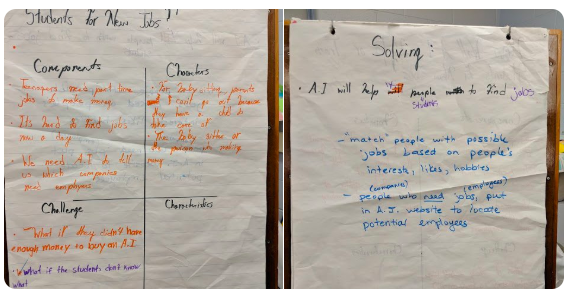 Students for New Jobs
Components
Teenagers need part time
jobs to make money
It's hard to find jobs
now a day
We need A.I to tell
us which companies
need employees
Characters
For baby sitting, parents
can't go out because
they have a child to
take care of
The baby sitter or
the person is making
money
Challenge
What if they didn't have
enough money to buy an A.I.
What if the students don't know
what
Characteristics
Solving:
A.I will help people to find jobs
students
"match" people with possible
jobs based on people's
interests, likes, hobbies
(companies) (employees)
people who need jobs, put
in A.I. website to locate
potential employees